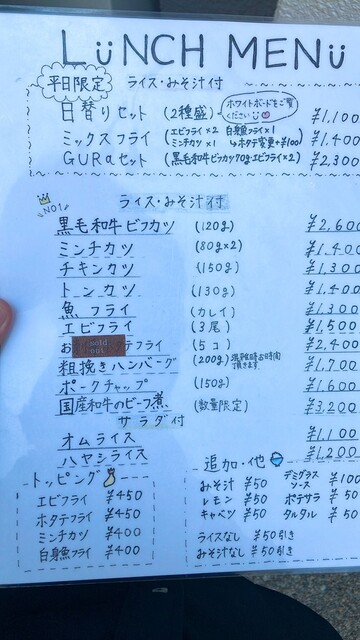 LÜNCH MENÜ
平日限定 ライス・みそ汁付
日替りセット (2種盛) ホワイトボードをご覧ください ¥1,100
ミックスフライ (エビフライ×2 白身フライ×1 ミンチカツ×1 ↳ホタテ変更+¥100) ¥1,400
GURaセット (黒毛和牛ビフカツ70g・エビフライ×2) ¥2,300
ライス・みそ汁付
NO1
黒毛和牛ビフカツ (120g) ¥2,600
ミンチカツ (80g×2) ¥1,400
チキンカツ (150g) ¥1,300
トンカツ (130g) ¥1,400
魚フライ (カレイ) ¥1,300
エビフライ (3尾) ¥1,500
お sold out タテフライ (5コ) ¥2,400
粗挽きハンバーグ (200g) 混雑時お時間頂きます ¥1,700
ポークチャップ (150g) ¥1,600
国産和牛のビーフ煮 (数量限定) ¥3,200
サラダ付
オムライス ¥1,100
ハヤシライス ¥1,200
トッピング
エビフライ ¥450
ホタテフライ ¥450
ミンチカツ ¥400
白身魚フライ ¥400
追加・他
みそ汁 ¥50 デミグラスソース ¥100
レモン ¥50 ポテサラ ¥50
キャベツ ¥50 タルタル ¥50
ライスなし ¥50引き
みそ汁なし ¥50引き